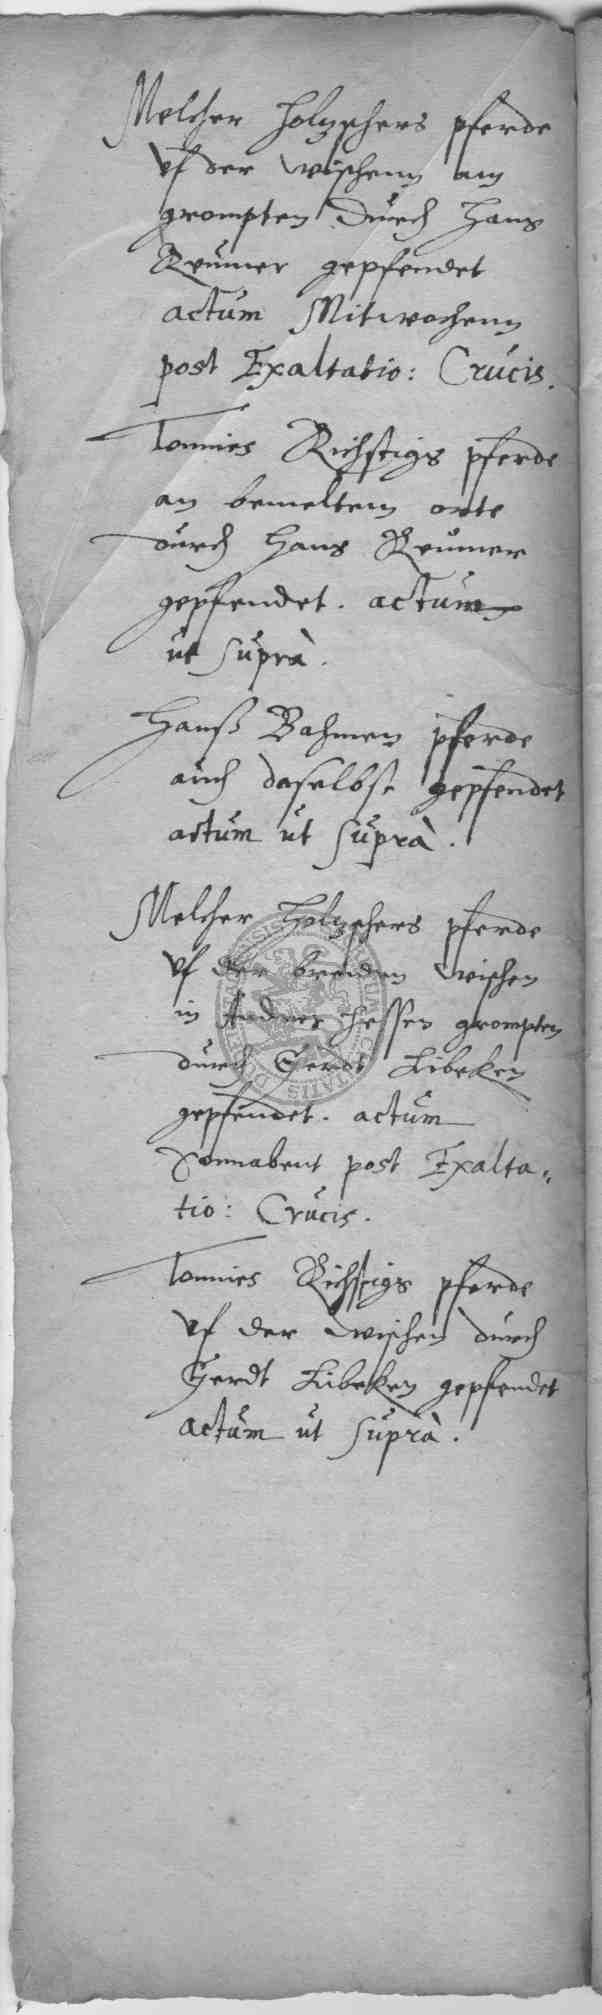 Melcher Holtzschers pferde
uf der wischenn am
grompten durch Hans
Reümer gepfendet
actum Mitwochenn
post Exaltatio: Crucis.
Tonnies Richstigs pferde
an bemeltem orte
durch Hans Reümer
gepfendet. actum
ut suprà.
Hanß Bahmen pferde
auch daselbst gepfendet
actum ut suprà.
Melcher Holtzschers pferde
uf der breiden wischen
in Andres Hessen grompten
durch Gerdt Libeken
gepfendet. actum
Sonnabent post Exalta-
tio: Crucis.
Tonnies Richstigs pferde
uf der wischen durch
Gerdt Libeken gepfendet
actum ut suprà.